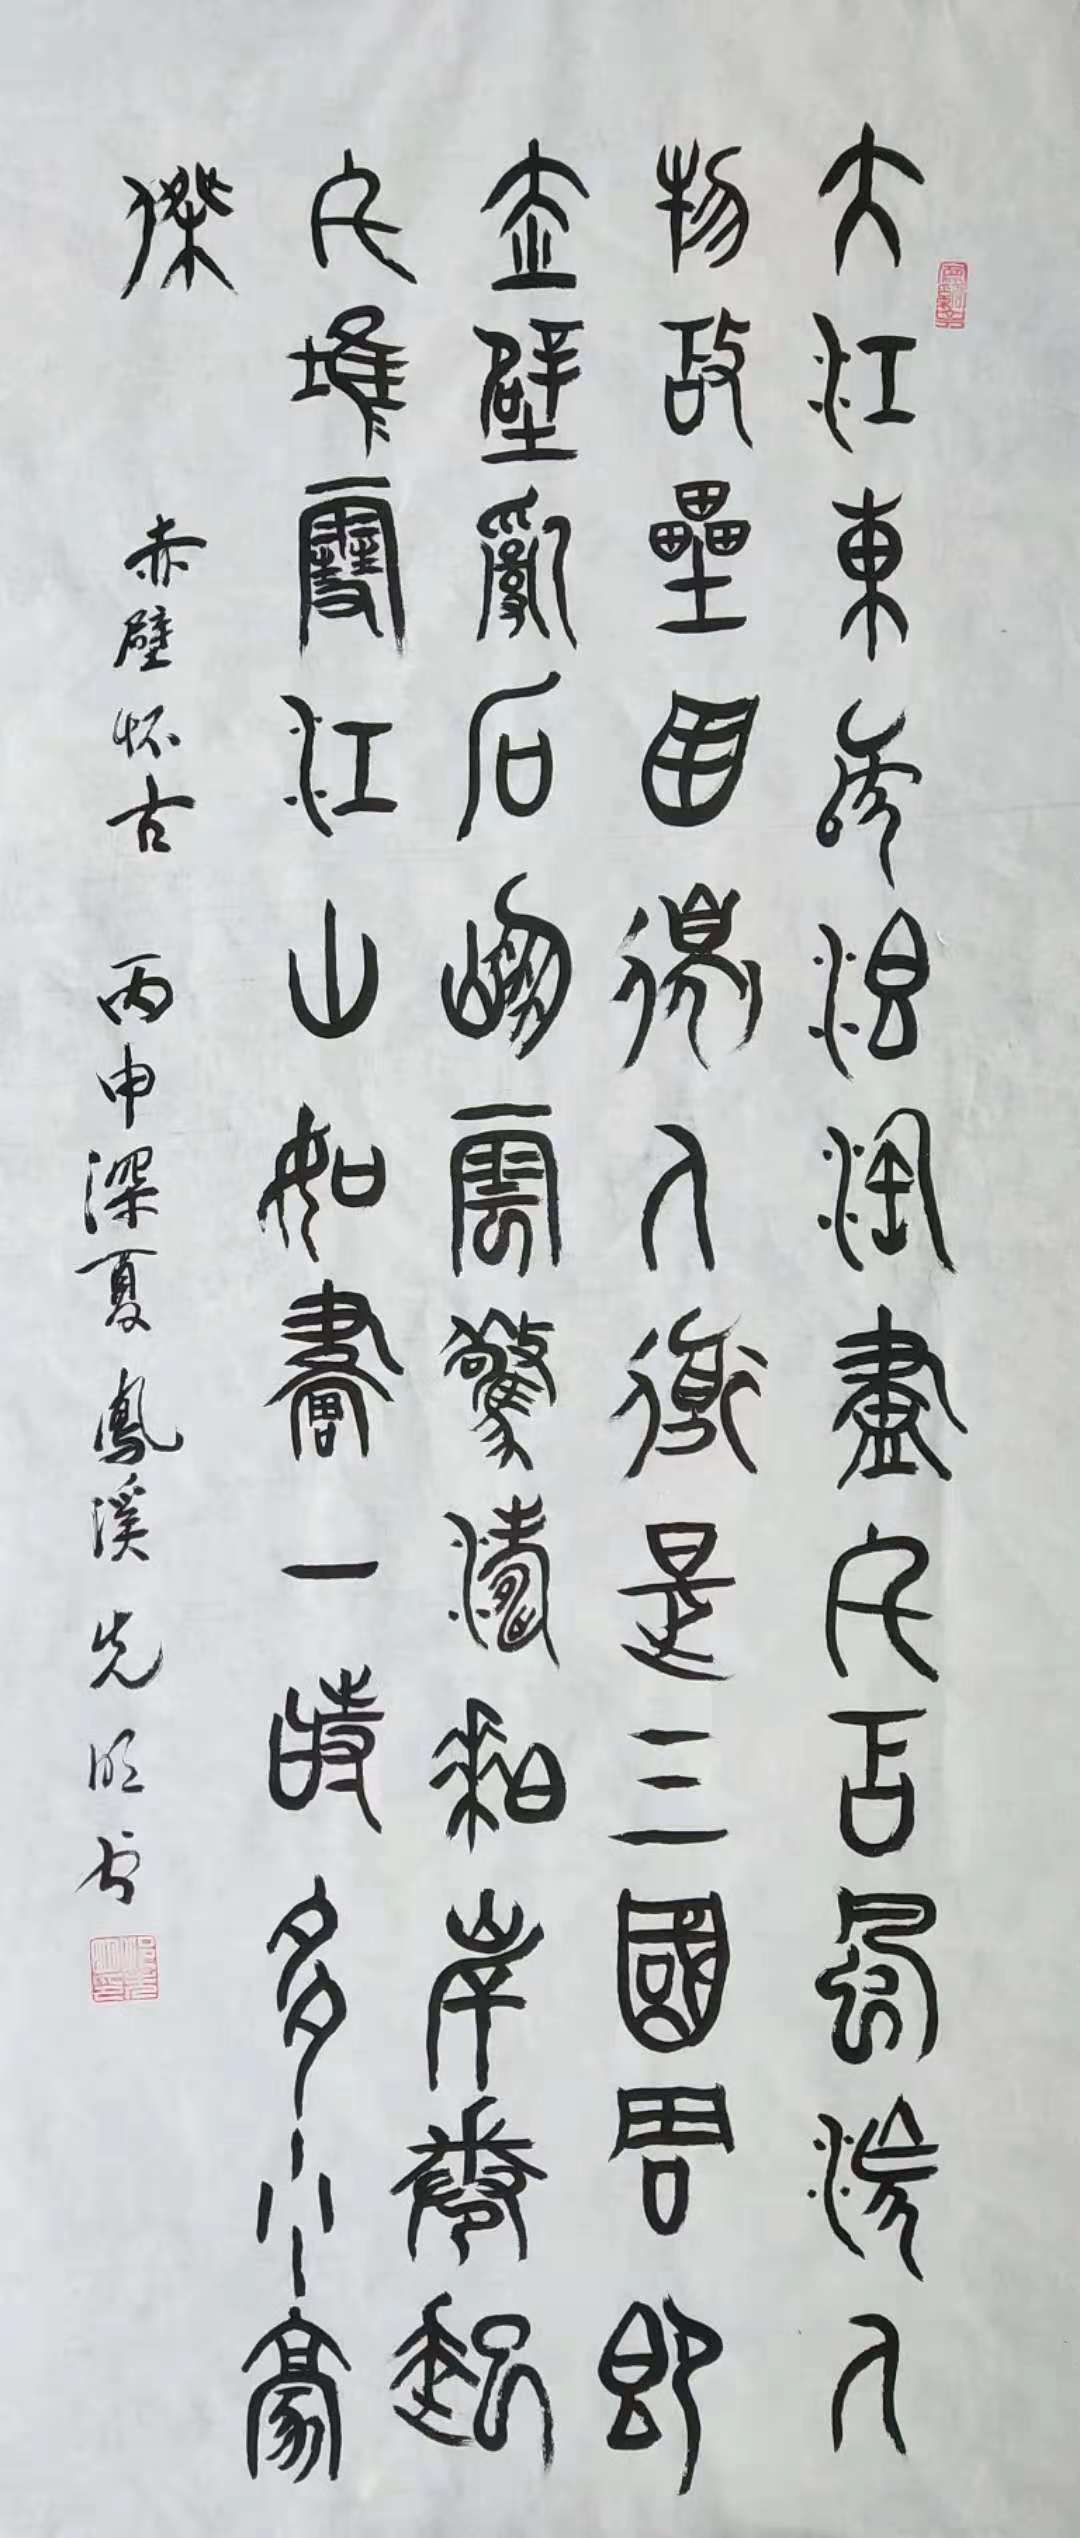 大江東去浪淘盡千古風流人
物故壘西邊人道是三國周郎
赤壁亂石崩雲驚濤拍岸捲起
千堆雪江山如畫一時多少豪
傑
赤壁怀古 丙申深夏鳳溪先书